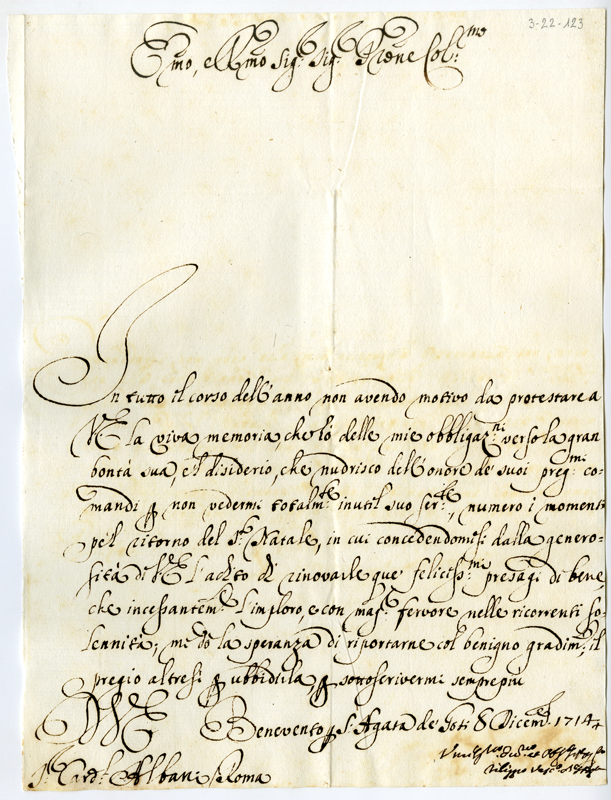 3-22-123
Em̃o, e Rm̃o Sig.r Sig.r P̃rone Col.mo
In tutto il corso dell'anno non avendo motivo da protestare a
VE la viva memoria, che hò delle mie obbligaz.ni verso la gran
bontà sua, e'l disiderio, che nudrisco dell'onore de' suoi preg.mi co-
mandi p non vedermi totalm.te inutil suo ser.re, numero i momenti
pe'l ritorno del S. Natale, in cui concedendomisi dalla genero-
sità di VE l'adito di rinovarle que' felicis.mi presagi di bene
che incessantem.te l'imploro, e con mag.r fervore nelle ricorrenti so-
lennità, me dò la speranza di riportarne col benigno gradim.to il
pregio altresì p ubbidirla, p sottoscrivermi sempre più
D VE Benevento p S. Agata de' Goti 8 Dicemb. 1714
S.r Card.l Albani Roma
Filippo Vesc.o